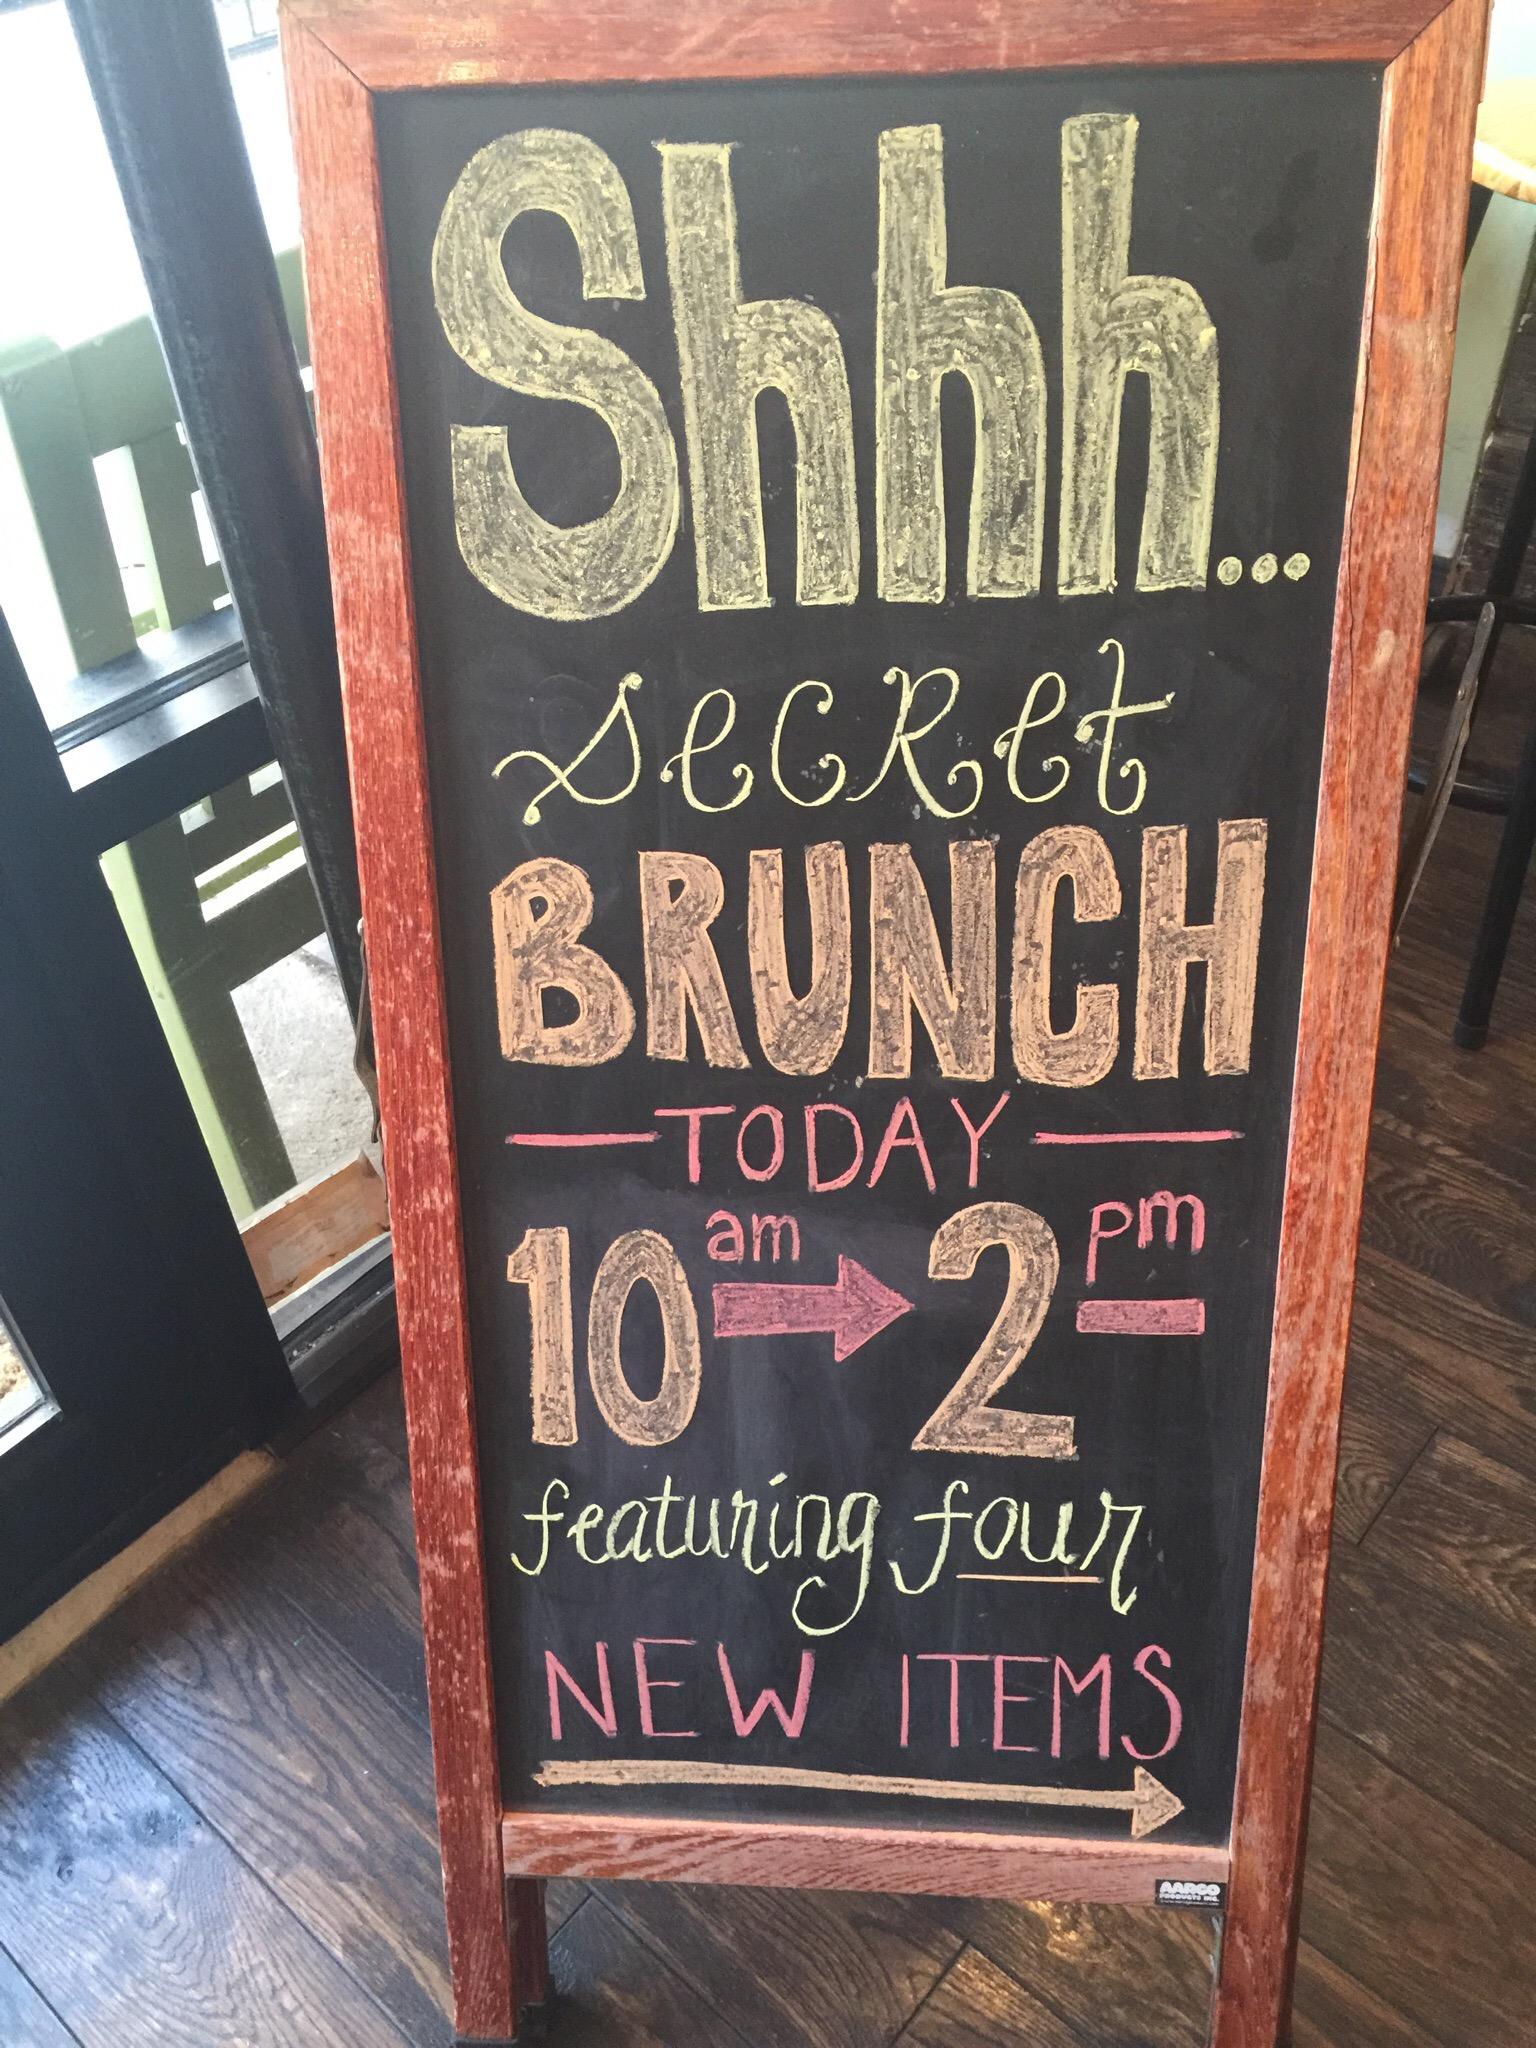 Shhh...
secRet
BRUNCH
TODAY
10 am → 2 pm
featuring four
NEW ITEMS
AARCO
PRODUCTS INC.